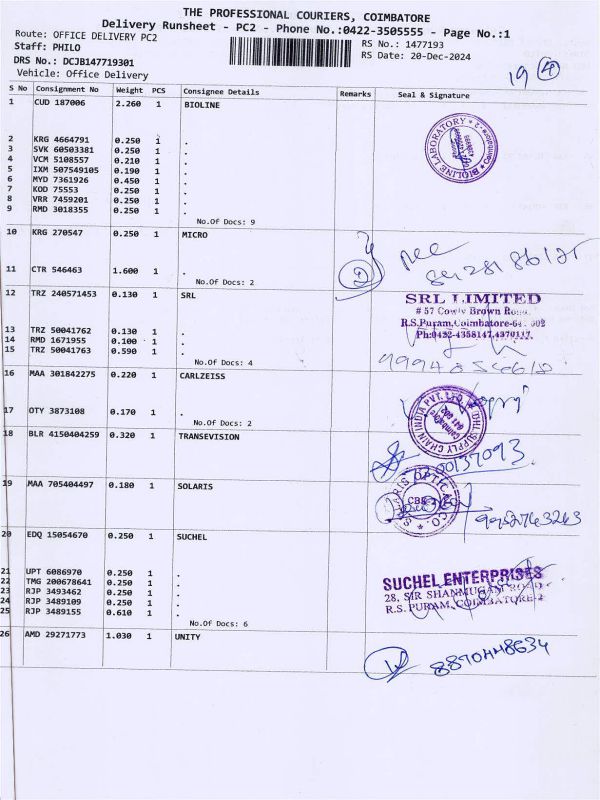 THE PROFESSIONAL COURIERS, COIMBATORE
Delivery Runsheet - PC2 - Phone No.:0422-3505555 - Page No.:1
Route: OFFICE DELIVERY PC2
RS No.: 1477193
Staff: PHILO
RS Date: 20-Dec-2024
DRS No.: DCJB147719301
Vehicle: Office Delivery
19 4
S No Consignment No Weight PCS Consignee Details Remarks Seal & Signature
1 CUD 187006 2.260 1 BIOLINE
BIOLINE LABORATORY
2 KRG 4664791 0.250 1 .
3 SVK 60503381 0.250 1 .
4 VCM 5108557 0.210 1 .
5 IXM 507549105 0.190 1 .
6 MYD 7361926 0.450 1 .
7 KOD 75553 0.250 1 .
8 VRR 7459201 0.250 1 .
9 RMD 3018355 0.250 1 .
No.Of Docs: 9
10 KRG 270547 0.250 1 MICRO
11 CTR 546463 1.600 1 .
2
No.Of Docs: 2
12 TRZ 240571453 0.130 1 SRL
SRL LIMITED
# 57 Cowly Brown Road,
R.S.Puram, Coimbatore-641 002
Ph:0422-4358147,4370117.
13 TRZ 50041762 0.130 1 .
14 RMD 1671955 0.100 1 .
15 TRZ 50041763 0.590 1 .
No.Of Docs: 4
16 MAA 301842275 0.220 1 CARLZEISS
DHL SUPPLY CHAIN INDIA PVT. LTD.
17 OTY 3873108 0.170 1 .
No.Of Docs: 2
18 BLR 4150404259 0.320 1 TRANSEVISION
19 MAA 705404497 0.180 1 SOLARIS
SOLARIS OPTICAL CO.
9952763263
20 EDQ 15054670 0.250 1 SUCHEL
21 UPT 6086970 0.250 1 .
22 TMG 200678641 0.250 1 .
23 RJP 3493462 0.250 1 .
24 RJP 3489109 0.250 1 .
25 RJP 3489155 0.610 1 .
No.Of Docs: 6
SUCHEL ENTERPRISES
28, SIR SHANMUGAM ROAD
R.S. PURAM, COIMBATORE-2
26 AMD 29271773 1.030 1 UNITY
8870448634